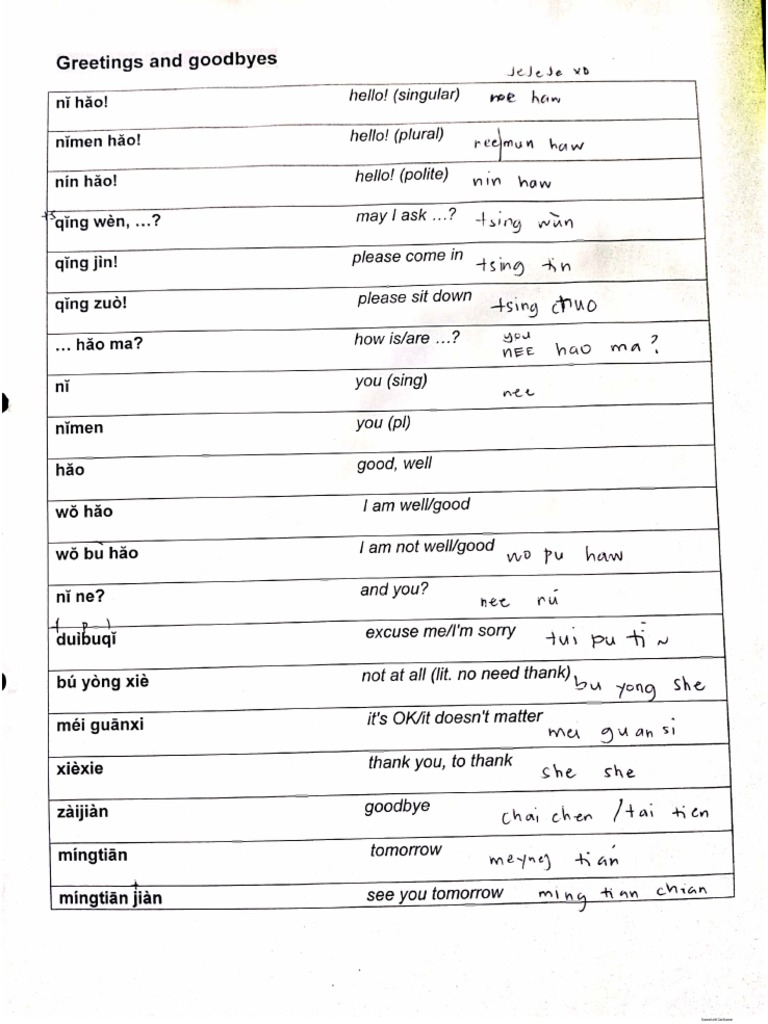 Greetings and goodbyes
JeJeJe XD
nǐ hǎo! hello! (singular) nee haw
nǐmen hǎo! hello! (plural) nee|mun haw
nín hǎo! hello! (polite) nin haw
ts
qǐng wèn, …? may I ask …? tsing wùn
qǐng jìn! please come in tsing tin
qǐng zuò! please sit down tsing chuo
you
… hǎo ma? how is/are …? NEE hao ma?
nǐ you (sing) nee
nǐmen you (pl)
hǎo good, well
wǒ hǎo I am well/good
wǒ bù hǎo I am not well/good wo pu haw
nǐ ne? and you? nee nú
t p
duìbuqǐ excuse me/I'm sorry tui pu ti ~
bú yòng xiè not at all (lit. no need thank) bu yong she
méi guānxi it's OK/it doesn't matter mei guan si
xièxie thank you, to thank she she
zàijiàn goodbye chai chen / tai tien
míngtiān tomorrow meyng tián
t
míngtiān jiàn see you tomorrow ming tian chian